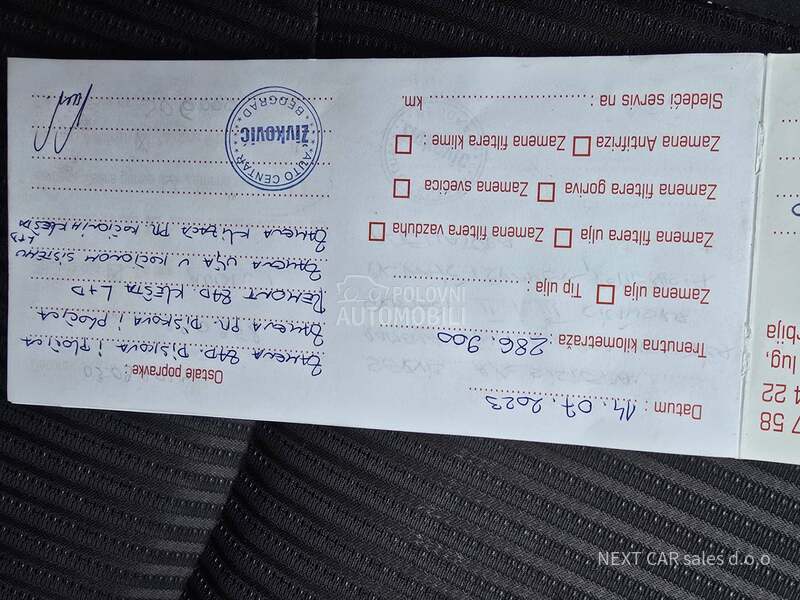 Datum : 14.07.2023
Trenutna kilometraža : 286.900
Zamena ulja Tip ulja :
Zamena filtera ulja Zamena filtera vazduha
Zamena filtera goriva Zamena svećica
Zamena Antifriza Zamena filtera klime :
Sledeći servis na : km.
Ostale popravke :
ZAMENA ZAD DISKOVA I PLOČICA
ZAMENA PR. DISKOVA I PLOČICA
REMONT ZAD KLEŠTA L+D
ZAMENA ULJA U KOČIONOM SISTEMU
ZAMENA KLIZAČA PR. KOČIONIH KLEŠTA L+D
AUTO CENTAR
Živković
BEOGRAD
POLOVNI
AUTOMOBILI
7 58
4 22
lug,
rbija
NEXT CAR sales d.o.o